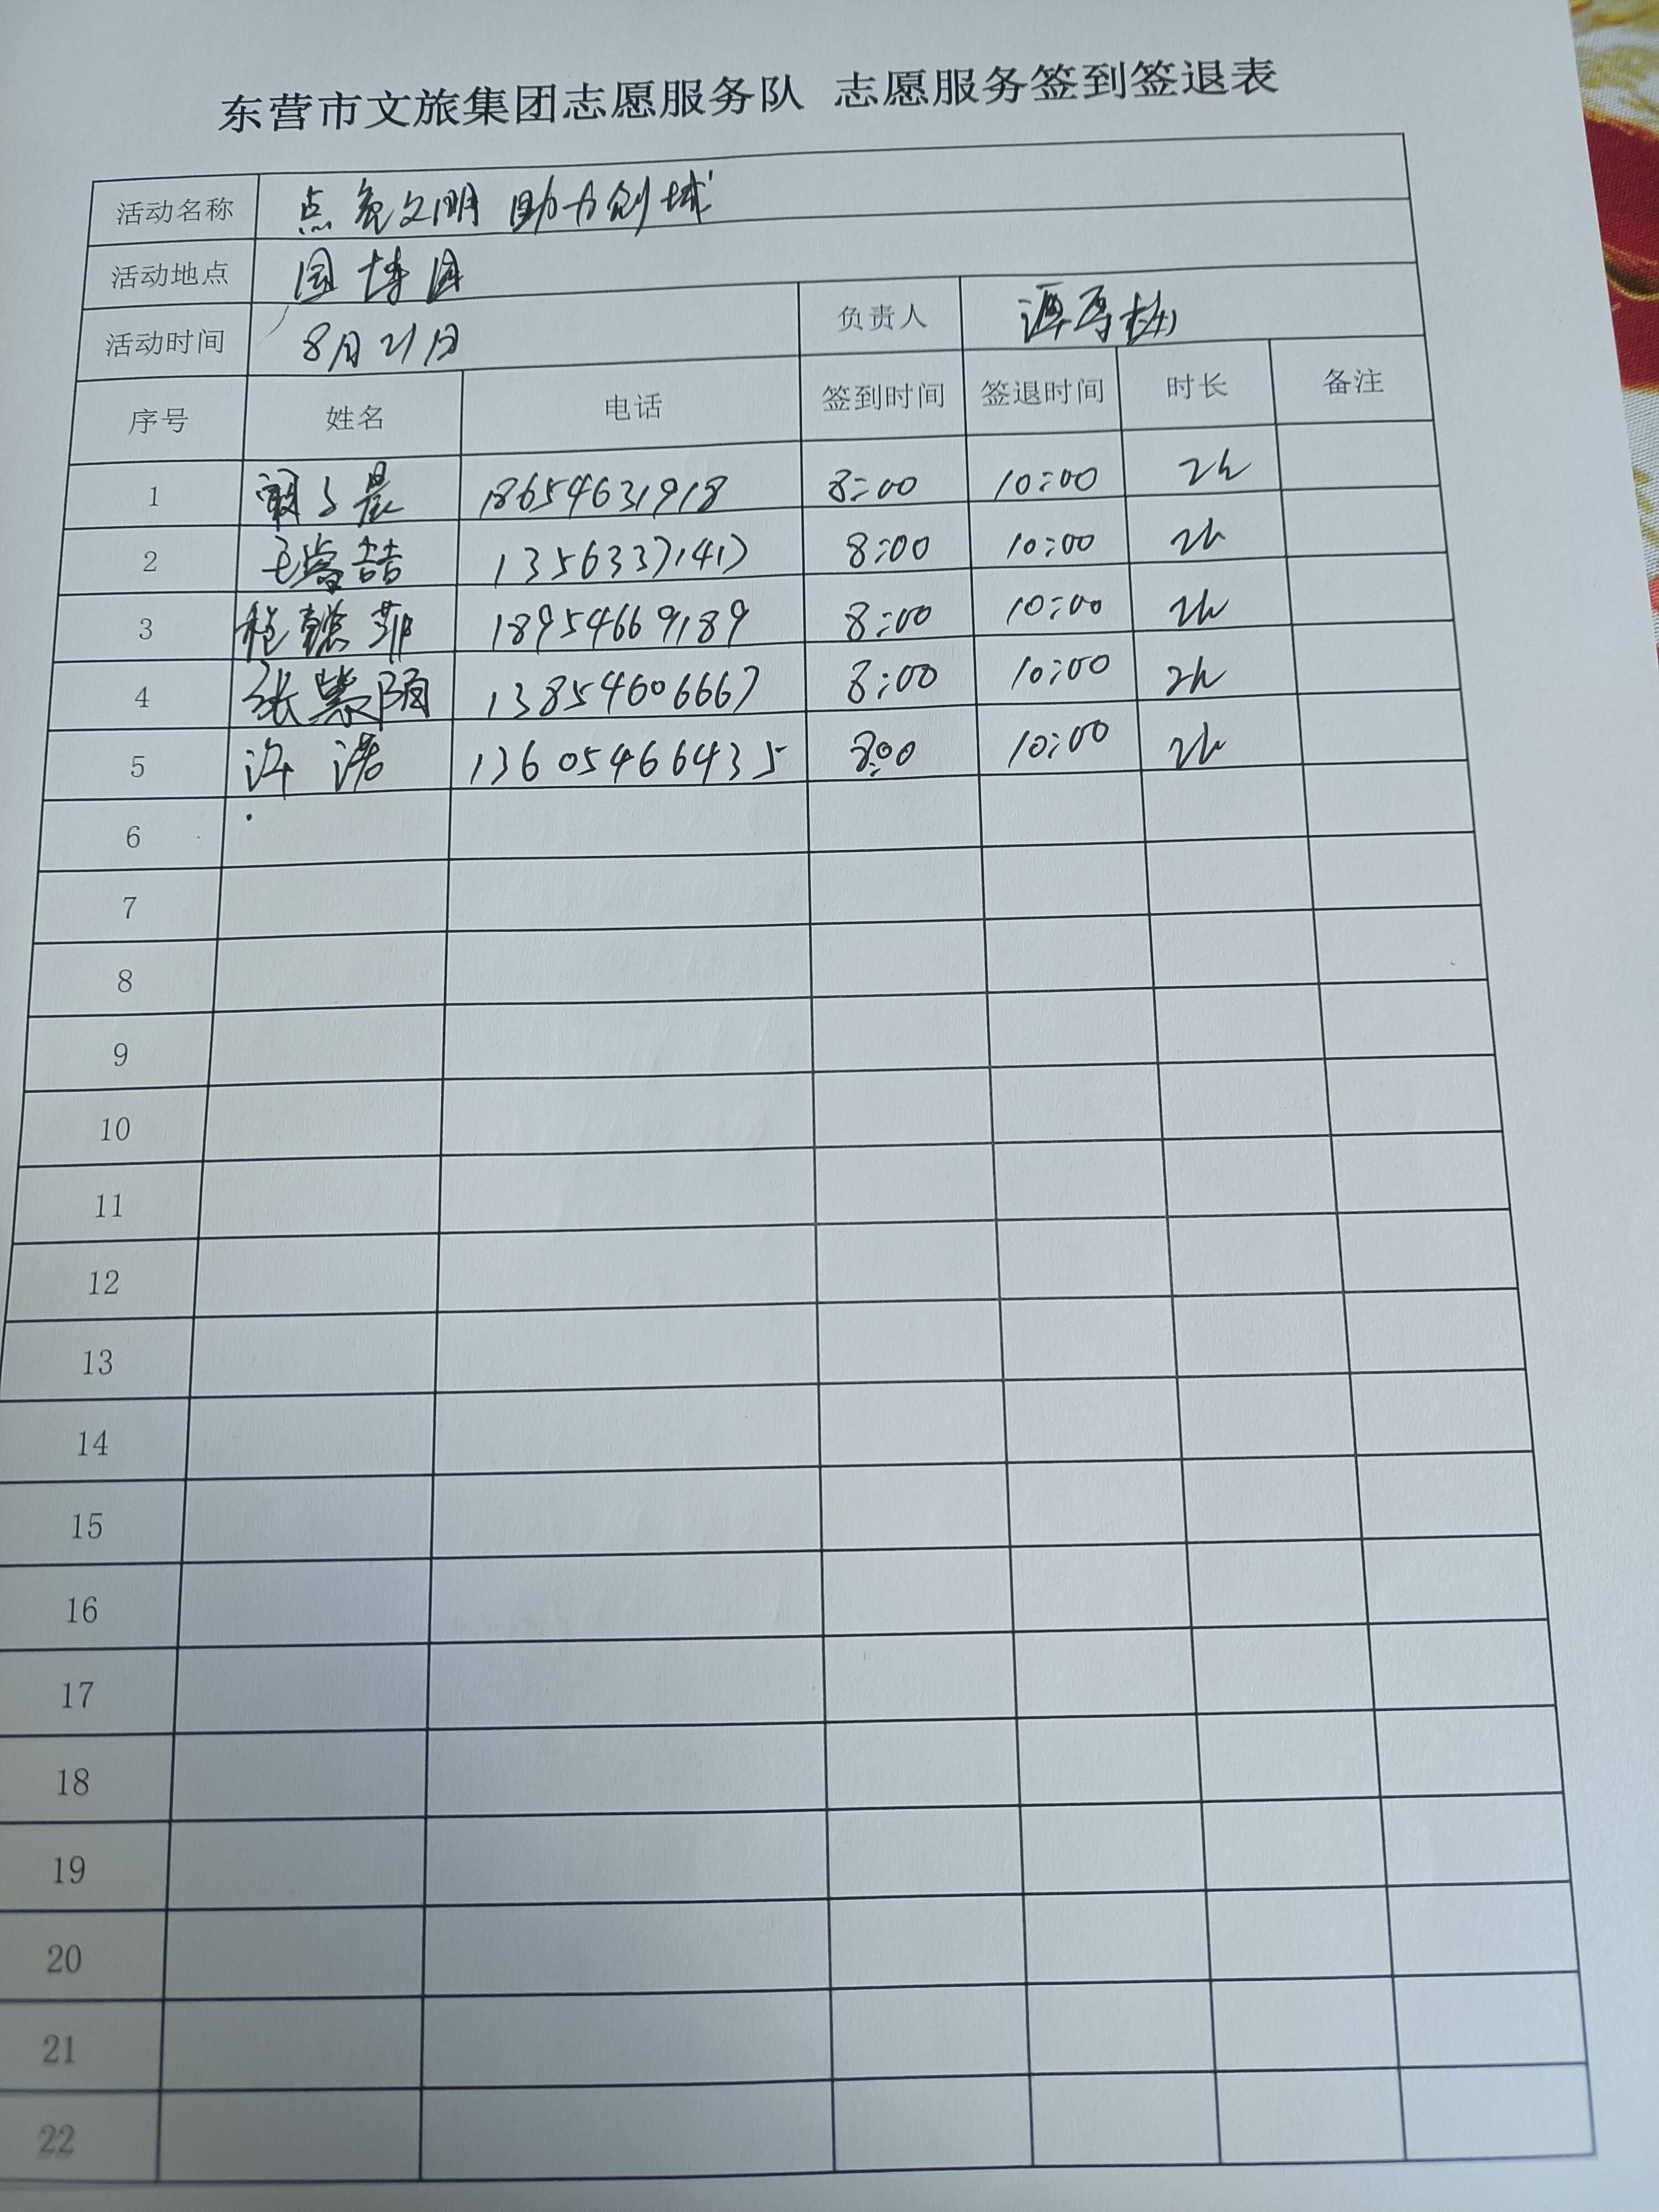 东营市文旅集团志愿服务队 志愿服务签到签退表
活动名称 点亮文明 助力创城
活动地点 园博园
活动时间 8月21日 负责人
序号 姓名 电话 签到时间 签退时间 时长 备注
1 18654631918 8:00 10:00 2h
2 王睿喆 13563371417 8:00 10:00 2h
3 程懿菲 18954669189 8:00 10:00 2h
4 张紫陌 13854606667 8:00 10:00 2h
5 许诺 13605466435 8:00 10:00 2h
6
7
8
9
10
11
12
13
14
15
16
17
18
19
20
21
22